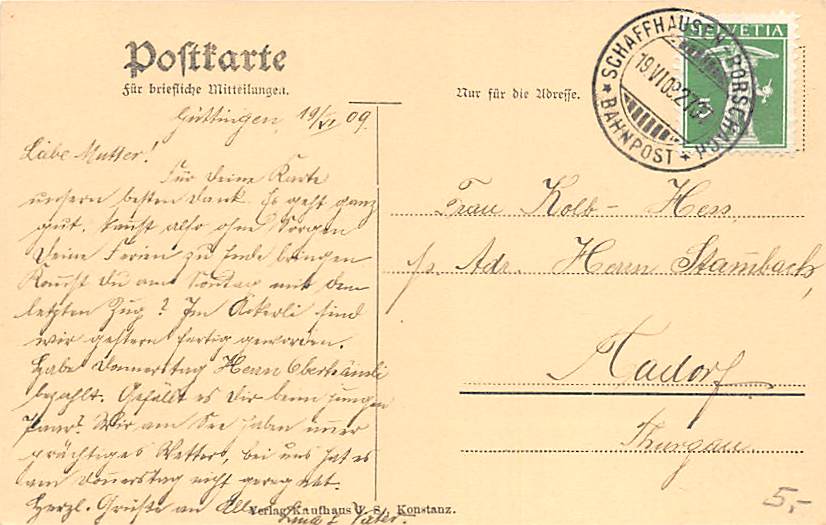 Postkarte
Für briefliche Mitteilungen.
Nur für die Adresse.
HELVETIA
SCHAFFHAUSEN - RORSCHACH
19.VI.09
* BAHNPOST *
Güttingen, 19/VI 09.
Liebe Mutter!
Für Deine Karte
unsern besten Dank. Es geht ganz
gut. kannst also ohne Sorgen
Deine Ferien zu Ende bringen
Kommst Du am Sonntag mit dem
letzten Zug? Im Äckerli sind
wir gestern fertig geworden.
Habe Donnerstag Herrn
bezahlt. Gefällt es Dir beim jungen
Paar? Wir am See haben immer
prächtiges Wetter, bei uns hat es
am Donnerstag nicht geregnet.
Herzl. Grüsse an Alle
Lina & Vater.
Frau Kolb - Hess,
p. Adr. Herrn Stambach,
Aadorf
Thurgau
Verlag Kaufhaus J. S., Konstanz.
5,-